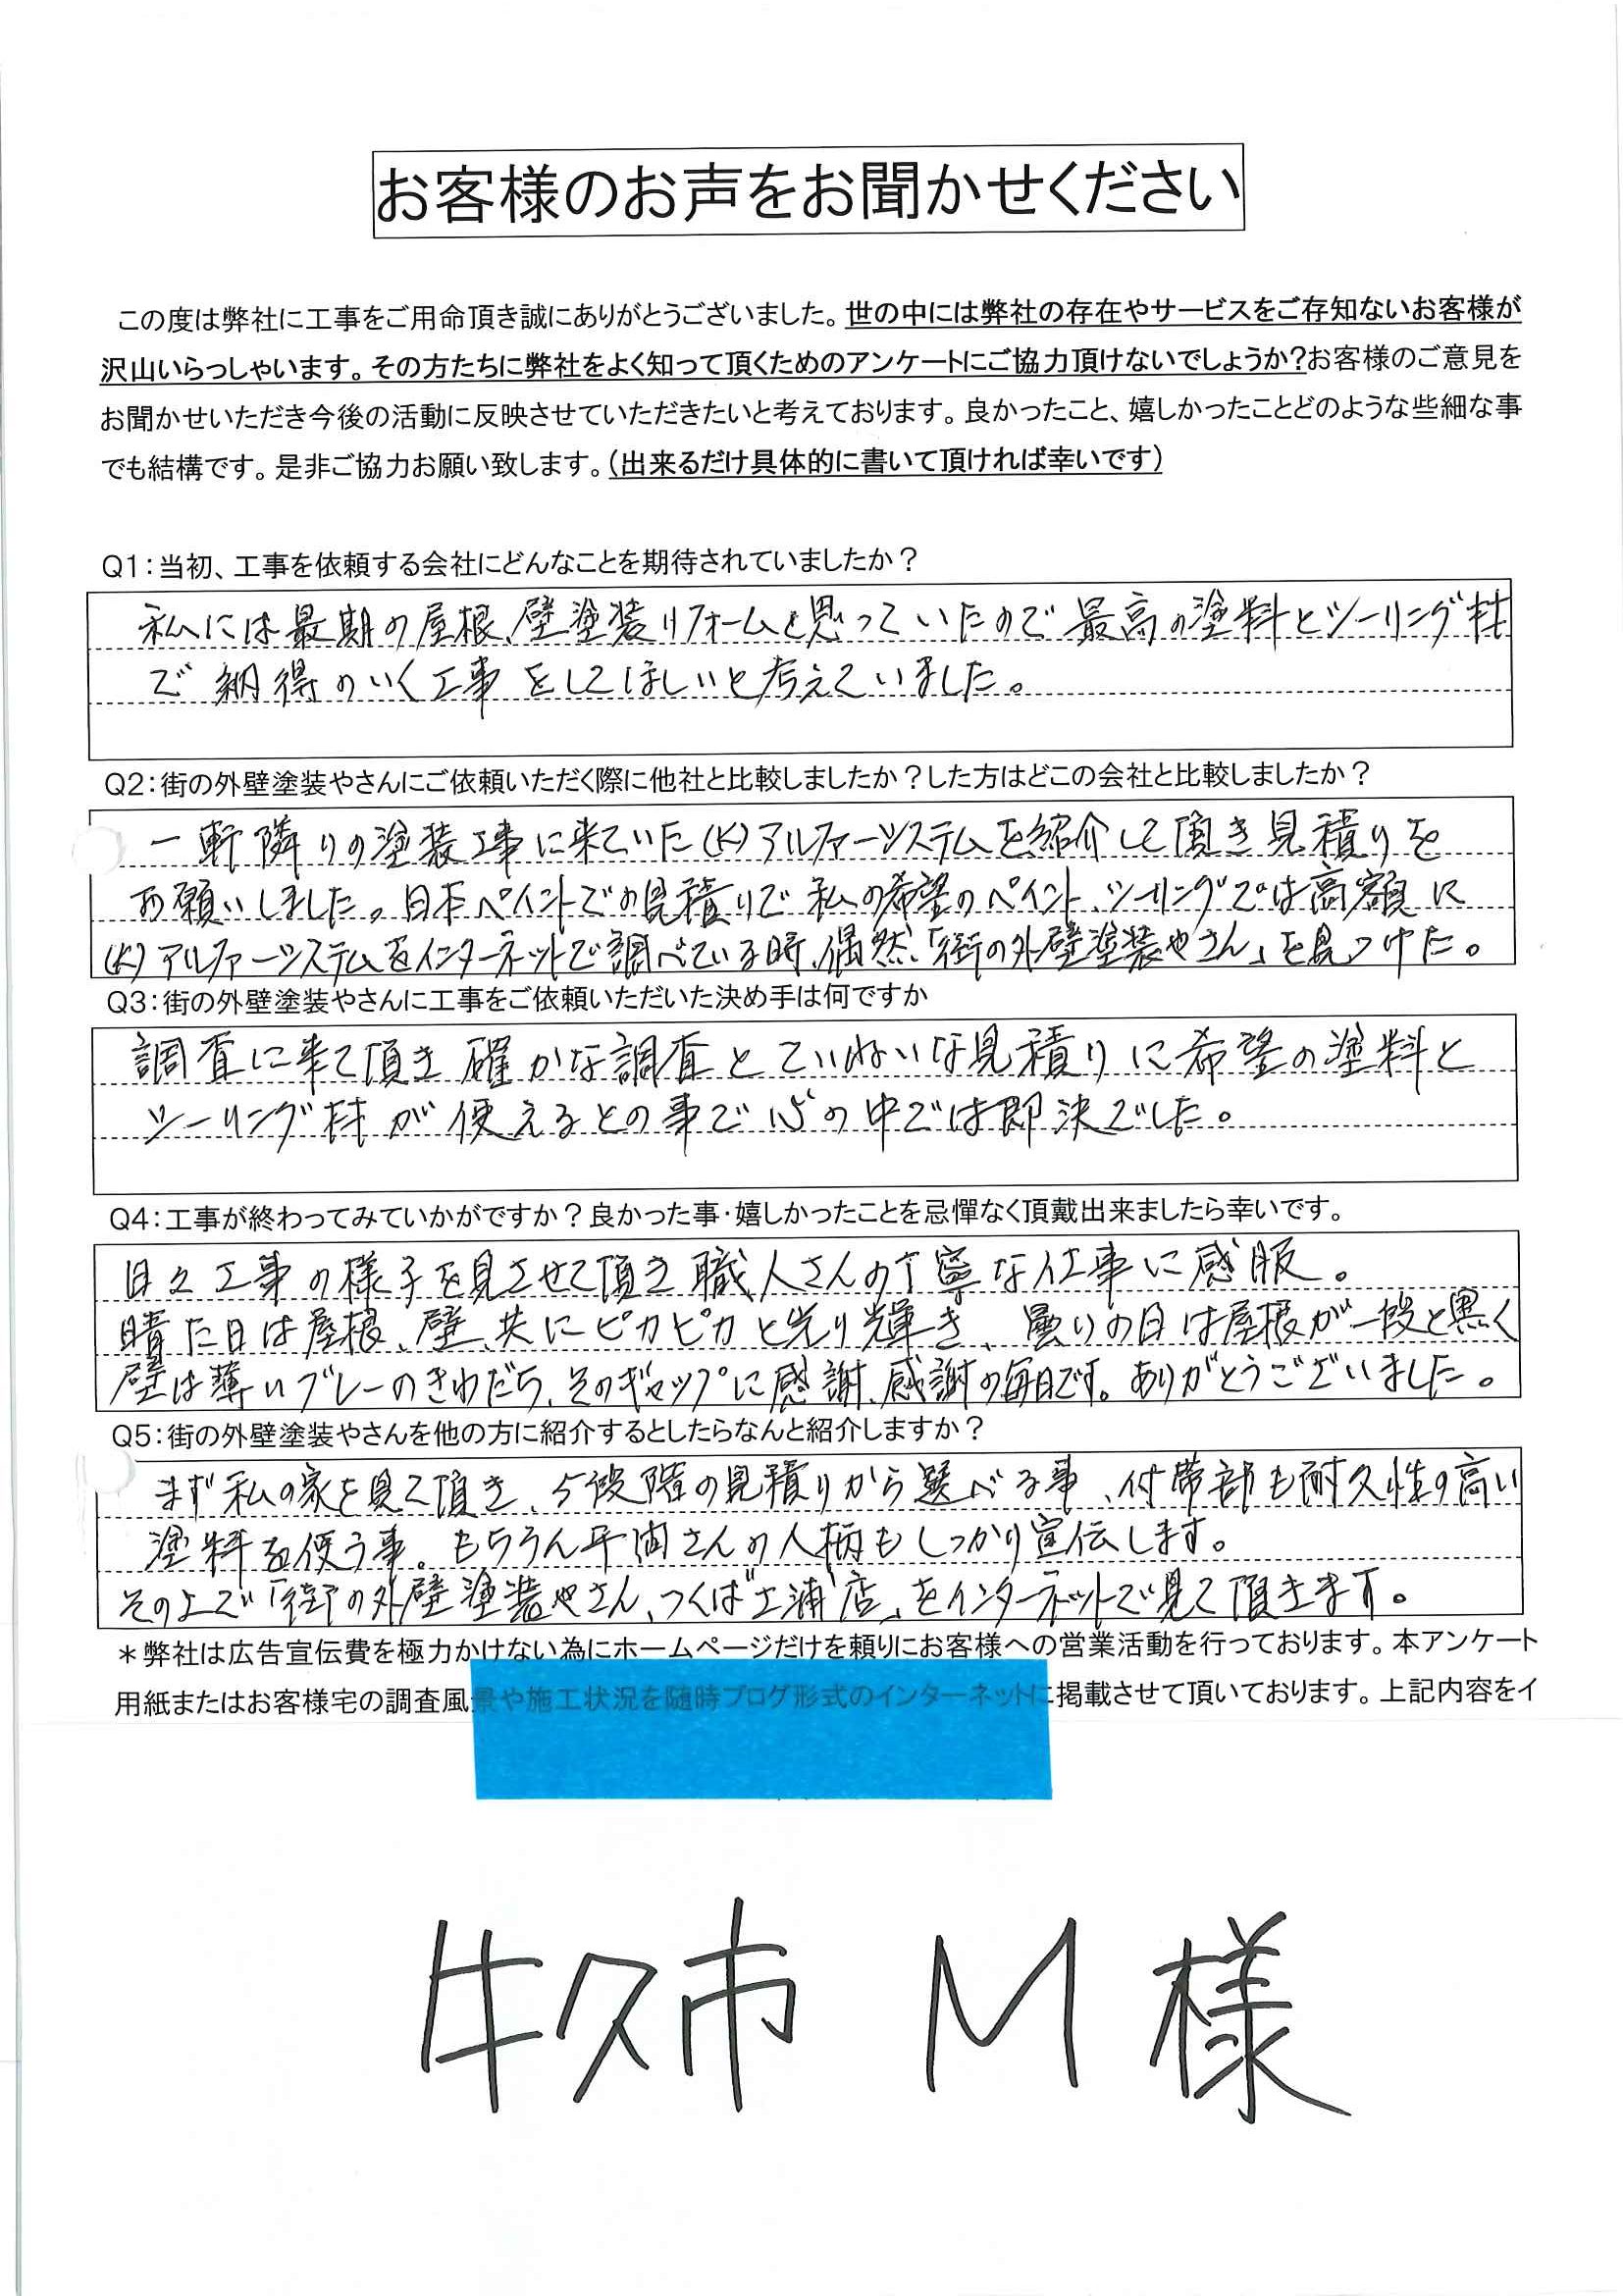 お客様のお声をお聞かせください
この度は弊社に工事をご用命頂き誠にありがとうございました。世の中には弊社の存在やサービスをご存知ないお客様が
沢山いらっしゃいます。その方たちに弊社をよく知って頂くためのアンケートにご協力頂けないでしょうか?お客様のご意見を
お聞かせいただき今後の活動に反映させていただきたいと考えております。良かったこと、嬉しかったことどのような些細な事
でも結構です。是非ご協力お願い致します。(出来るだけ具体的に書いて頂ければ幸いです)
Q1:当初、工事を依頼する会社にどんなことを期待されていましたか?
私には最期の屋根、壁塗装リフォームと思っていたので最高の塗料とシーリング材
で納得のいく工事をしてほしいと考えていました。
Q2:街の外壁塗装やさんにご依頼いただく際に他社と比較しましたか?した方はどこの会社と比較しましたか?
一軒隣りの塗装工事に来ていた(K)アルファーシステムを紹介して頂き見積りを
お願いしました。日本ペイントでの見積りで私の希望のペイント、シーリングでは高額に
(K)アルファーシステムをインターネットで調べている時、偶然、「街の外壁塗装やさん」を見つけた。
Q3:街の外壁塗装やさんに工事をご依頼いただいた決め手は何ですか
調査に来て頂き確かな調査とていねいな見積りに希望の塗料と
シーリング材が使えるとの事で心の中では即決でした。
Q4:工事が終わってみていかがですか?良かった事・嬉しかったことを忌憚なく頂戴出来ましたら幸いです。
日々工事の様子を見させて頂き職人さんの丁寧な仕事に感服。
晴た日は屋根、壁、共にピカピカと光り輝き、曇りの日は屋根が一段と黒く
壁は薄いブレーのきわだち、そのギャップに感謝、感謝の毎日です。ありがとうございました。
Q5:街の外壁塗装やさんを他の方に紹介するとしたらなんと紹介しますか?
まず私の家を見て頂き、5段階の見積りから選べる事、付帯部も耐久性の高い
塗料を使う事。もちろん平岡さんの人柄もしっかり宣伝します。
その上で「街の外壁塗装やさん、つくば土浦店」をインターネットで見て頂きます。
*弊社は広告宣伝費を極力かけない為にホームページだけを頼りにお客様への営業活動を行っております。本アンケート
用紙またはお客様宅の調査風景や施工状況を随時ブログ形式のインターネットに掲載させて頂いております。上記内容をイ
牛久市 M様